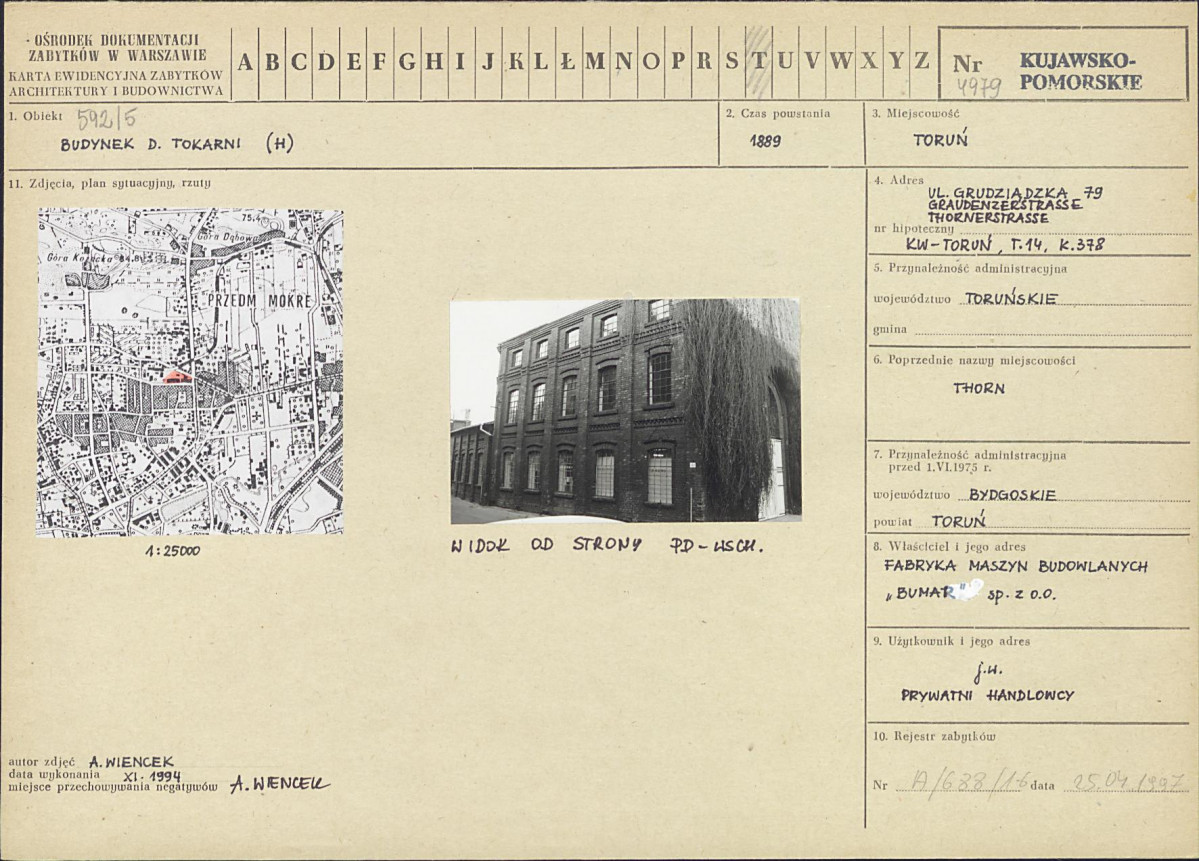 · OŚRODEK DOKUMENTACJI
ZABYTKÓW W WARSZAWIE
KARTA EWIDENCYJNA ZABYTKÓW
ARCHITEKTURY I BUDOWNICTWA
A B C D E F G H I J K L Ł M N O P R S T U V W X Y Z
Nr 4979
KUJAWSKO-
POMORSKIE
1. Obiekt 592/5
BUDYNEK D. TOKARNI (H)
2. Czas powstania
1889
3. Miejscowość
TORUŃ
11. Zdjęcia, plan sytuacyjny, rzuty
75,4
Góra Dębowa
Góra Kozacka
PRZEDM MOKRE
1:25000
WIDOK OD STRONY PD-WSCH.
autor zdjęć A. WIENCEK
data wykonania XI. 1994
miejsce przechowywania negatywów A. WIENCEK
4. Adres
UL. GRUDZIĄDZKA 79
GRAUDENZERSTRASSE
THORNERSTRASSE
nr hipoteczny
KW-TORUŃ, T.14, K.378
5. Przynależność administracyjna
województwo TORUŃSKIE
gmina
6. Poprzednie nazwy miejscowości
THORN
7. Przynależność administracyjna
przed 1.VI.1975 r.
województwo BYDGOSKIE
powiat TORUŃ
8. Właściciel i jego adres
FABRYKA MASZYN BUDOWLANYCH
„BUMAR" sp. z o.o.
9. Użytkownik i jego adres
j.w.
PRYWATNI HANDLOWCY
10. Rejestr zabytków
Nr A/688/1-6 data 25.04.1997